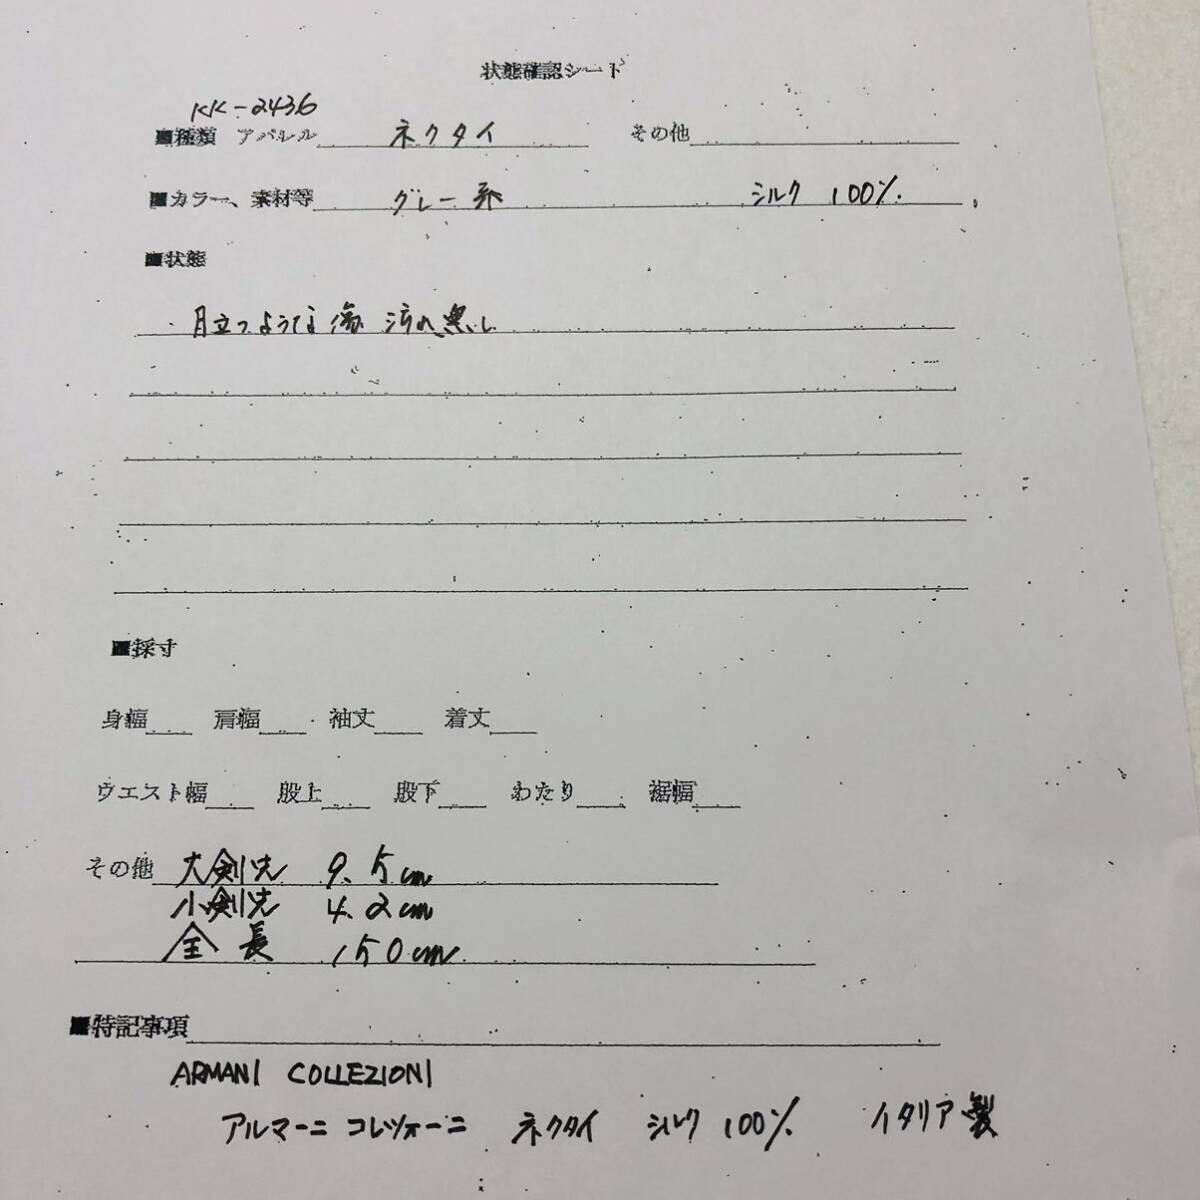 状態確認シート
KK-2436
■種類 アパレル ネクタイ その他
■カラー、素材等 グレー系 シルク 100%
■状態
目立つような傷 汚れ 無し
■採寸
身幅 肩幅 袖丈 着丈
ウエスト幅 股上 股下 わたり 裾幅
その他 大剣先 9.5cm
小剣先 4.2cm
全長 150cm
■特記事項
ARMANI COLLEZIONI
アルマーニ コレツォーニ ネクタイ シルク 100% イタリア製